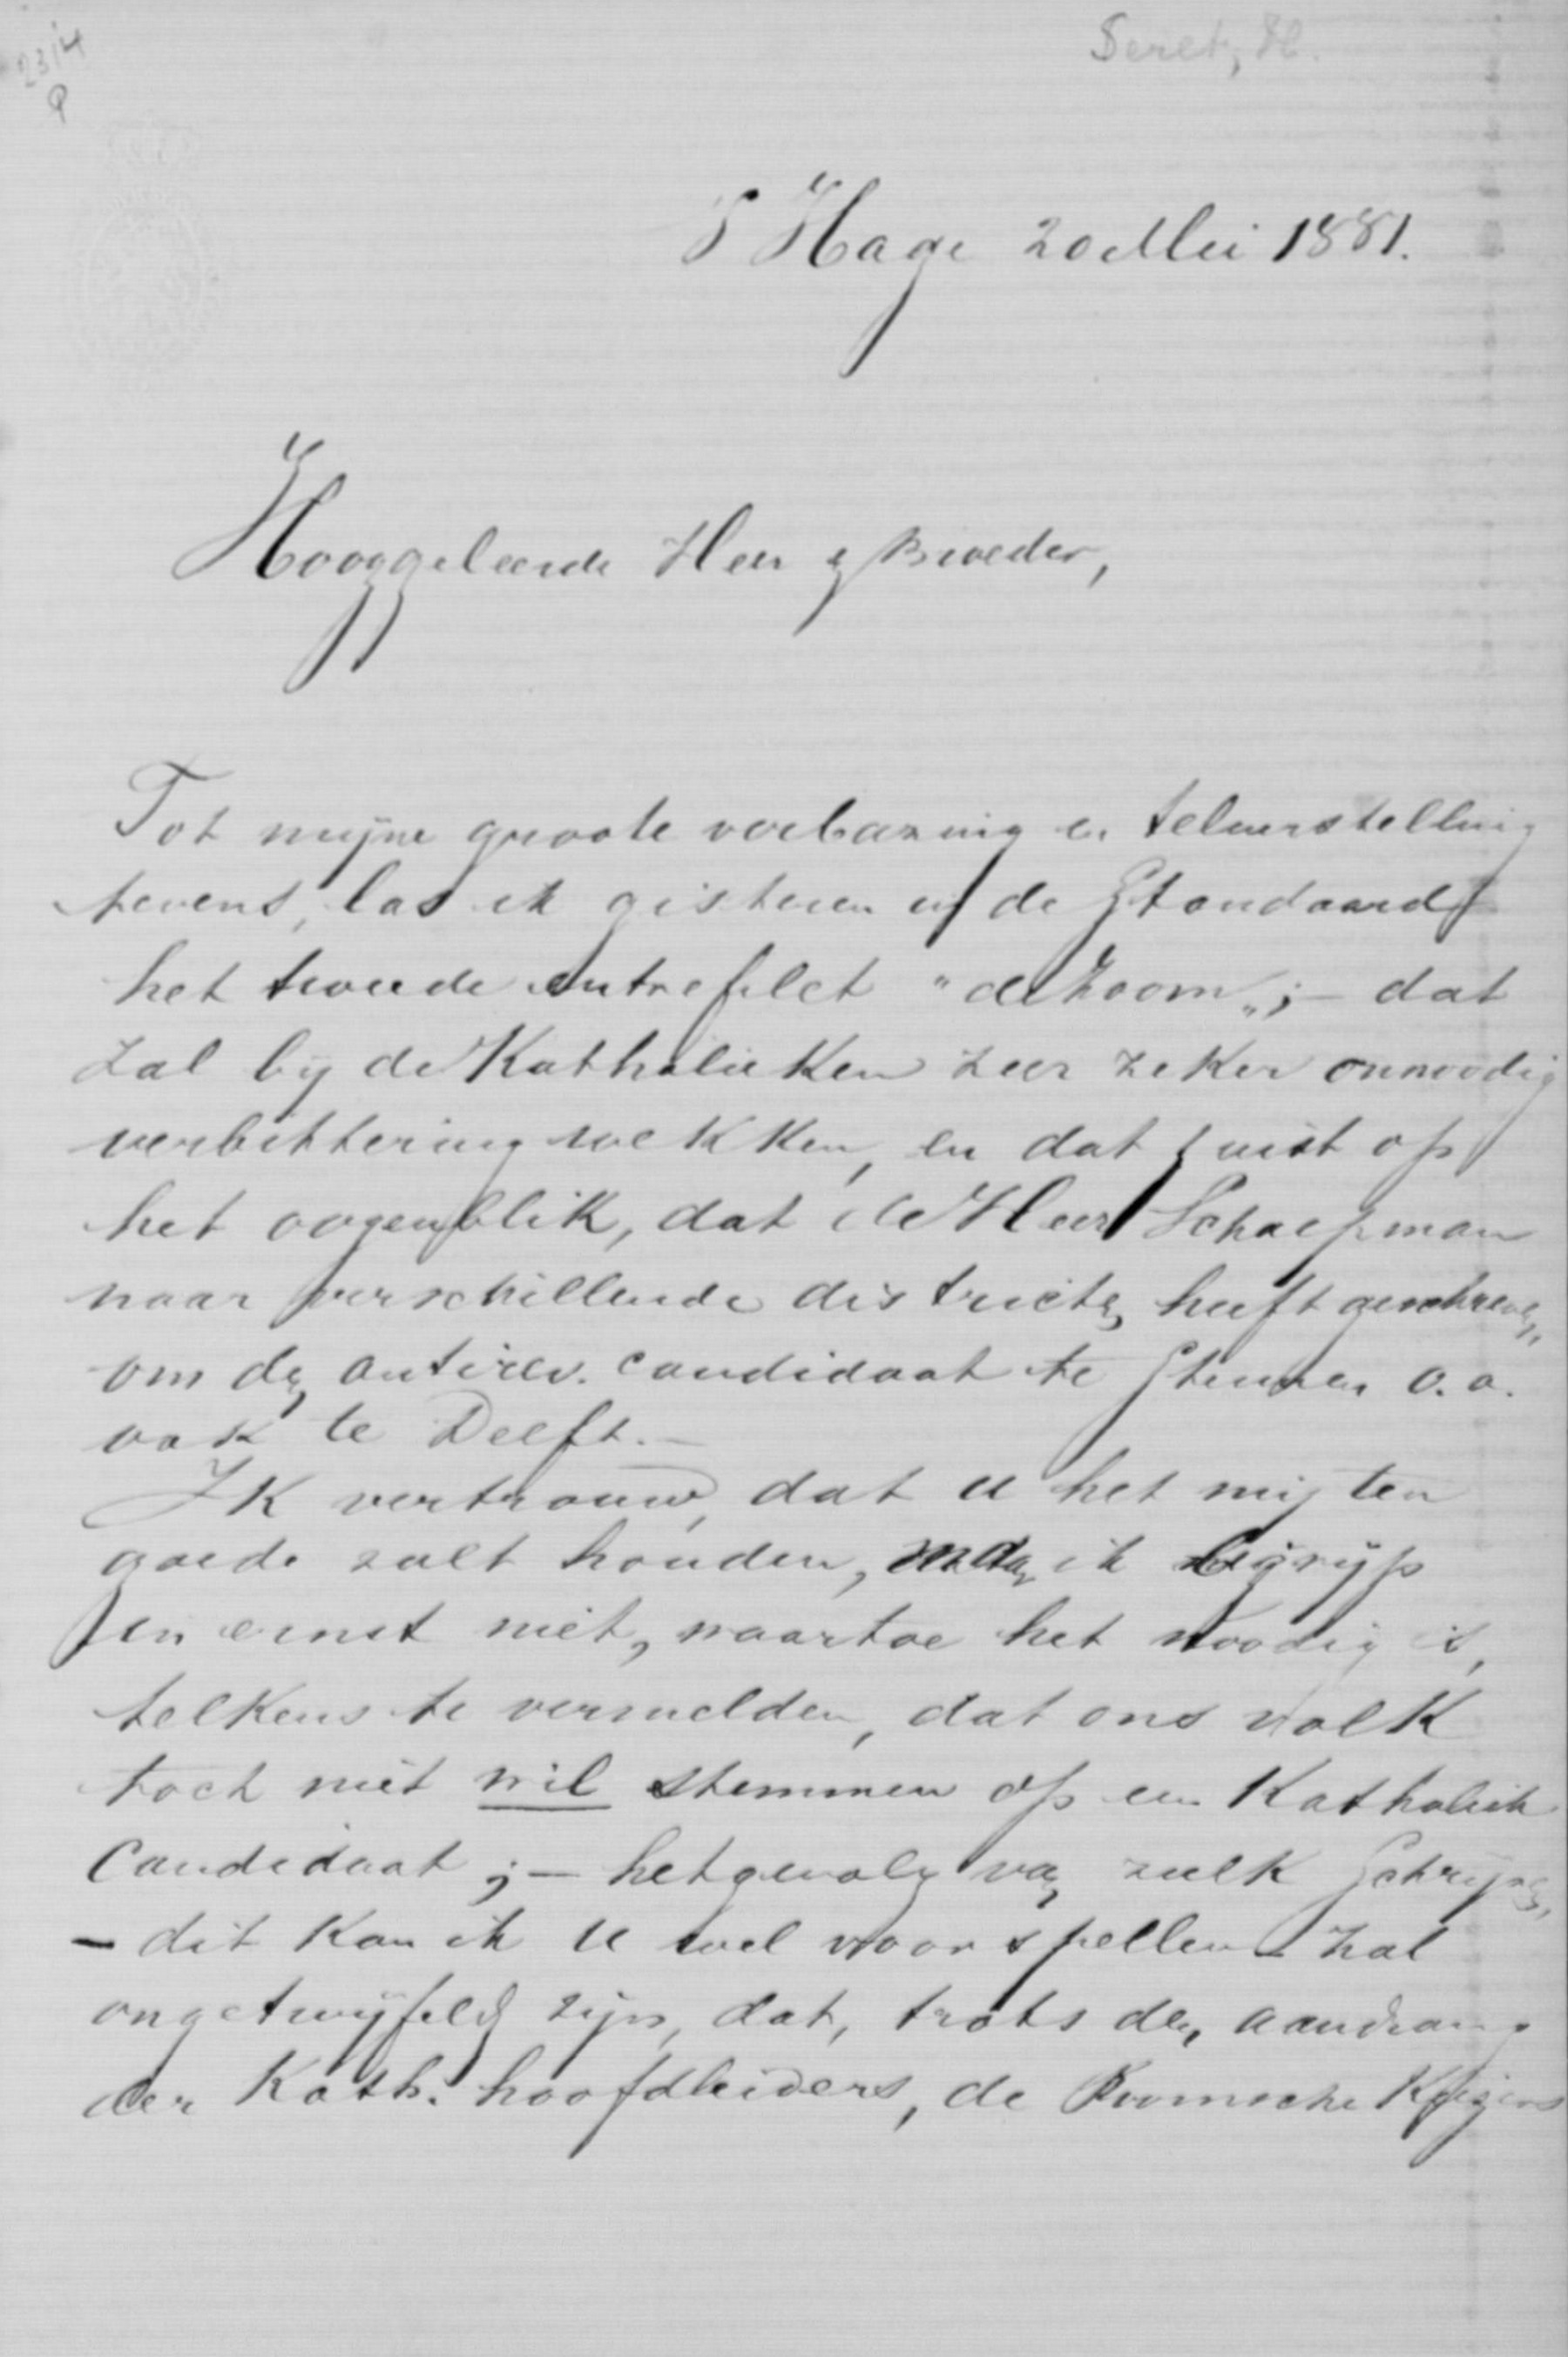 2314
Seret, H.
'S Hage 20 Mei 1881.
Hooggeleerde Heer en Broeder,
Tot mijne groote verbazing en teleurstelling
tevens, las ik gisteren in de Standaard
het tweede entrefilet "de Zoom"; — dat
zal bij de Katholieken zeer zeker onnoodig
verbittering wekken, en dat juist op
het oogenblik, dat de Heer Schaepman
naar verschillende districten heeft geschreven,
om den antirev. candidaat te steunen o.a.
ook te Delft. —
Ik vertrouw, dat u het mij ten
goede zult houden, maar ik begrijp
in ernst niet, waartoe het noodig is,
telkens te vermelden, dat ons volk
toch niet wil stemmen op een Katholiek
Candidaat ; — het gevolg van zulk schrijven,
— dit kan ik u wel voorspellen — zal
ongetwijfeld zijn, dat, trots den aandrang
der Kath. hoofdleiders, de Roomsche Kiezers